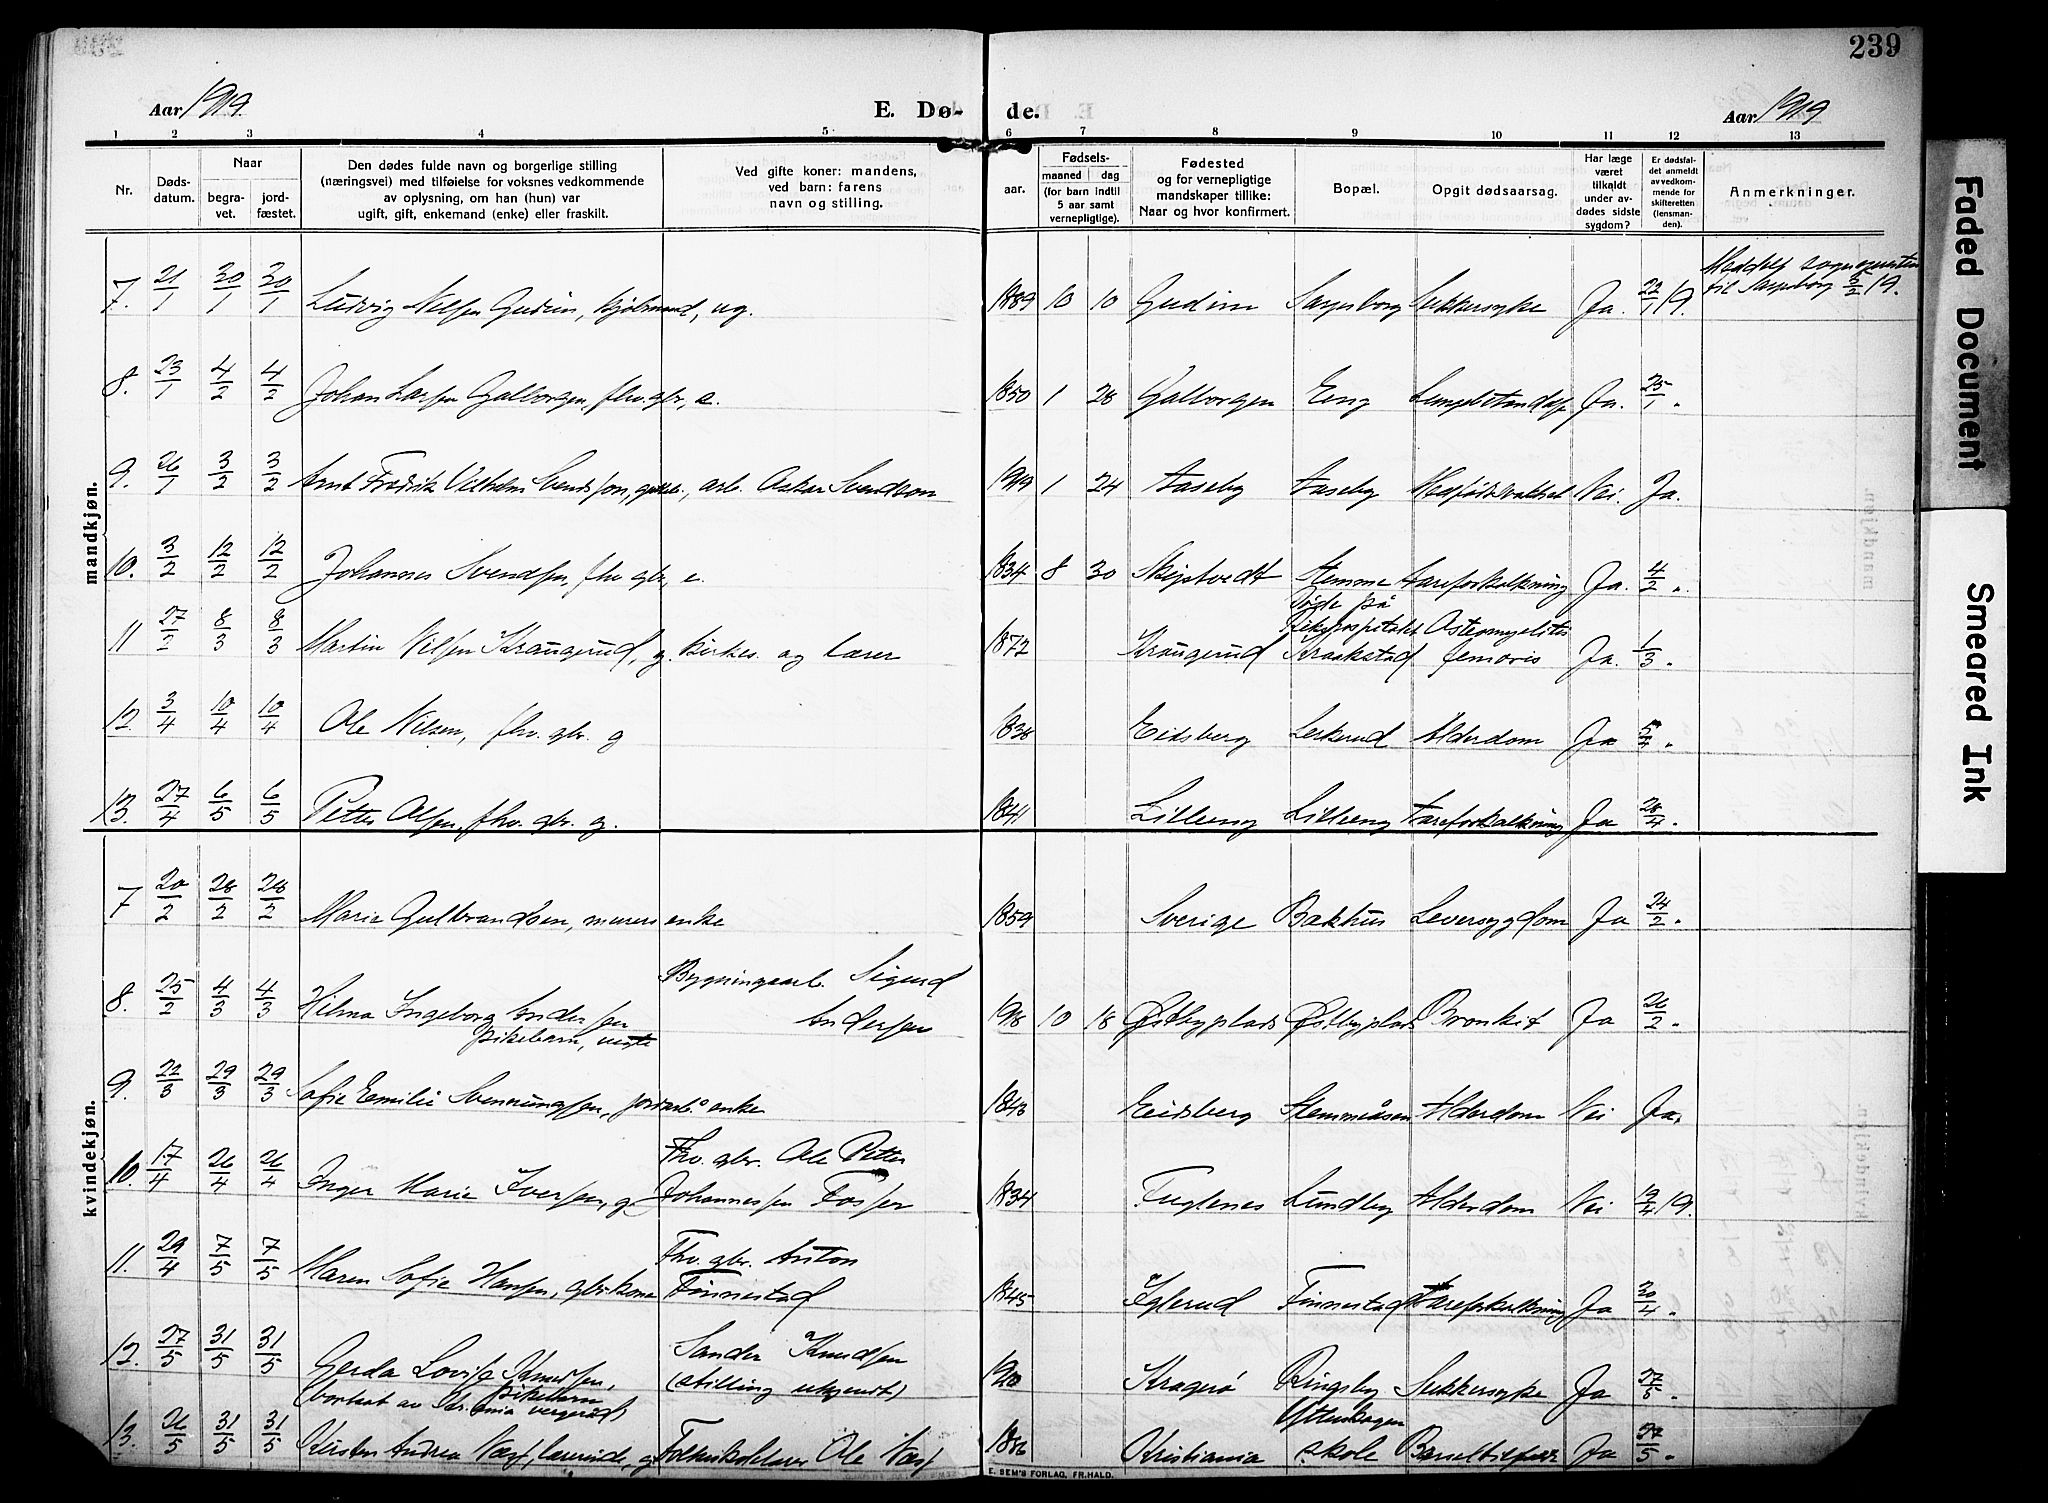 239
Aar 1919.
E. Dø-
de.
Aar 1919
1 2 3 4 5 6 7 8 9 10 11 12 13
Nr.
Døds-
datum.
Naar
begra-
vet.
jord-
fæstet.
Den dødes fulde navn og borgerlige stilling
(næringsvei) med tilføielse for voksnes vedkommende
av oplysning, om han (hun) var
ugift, gift, enkemand (enke) eller fraskilt.
Ved gifte koner: mandens,
ved barn: farens
navn og stilling.
Fødsels-
aar.
maaned
dag
(for barn indtil
5 aar samt
vernepligtige).
Fødested
og for vernepligtige
mandskaper tillike:
Naar og hvor konfirmert.
Bopæl.
Opgit dødsaarsag.
Har læge
været
tilkaldt
under av-
dødes sidste
sygdom?
Er dødsfal-
det anmeldt
av vedkom-
mende for
skifteretten
(lensman-
den).
Anmerkninger.
mandkjøn.
7. 21/1 30/1 30/1 Ludvig Nilsen Gudim, kjøbmand, ug. 1889 10 10 Gudim Sarpsborg Sukkersyke Ja. 22/1 19.
til Sarpsborg 3/2 19.
8. 23/1 4/2 4/2 Johan Larsen fhv. gbr., e. 1850 1 28 Eng Ja. 25/1 "
9. 26/1 3/2 3/2 Arnt Fredrik Vilhelm Svendsen, arb. Oskar Svendsen 1919 1 24 Aaseby Aaseby Nei. Ja.
10. 3/2 12/2 12/2 Johannes Svendsen, fhv. gbr., e. 1834 8 30 Skjetvedt Stemme Aareforkalkning Ja. 4/2 "
11 27/2 8/3 8/3 Martin Nilsen Kraugerud, g. kirkes. og lærer 1872 Kraugerud
Døde på
Rikshospitalet
Kraakstad
Osteomyelitis
femoris Ja. 1/3 "
12. 3/4 10/4 10/4 Ole Nilsen, fhv. gbr. g 1838 Eidsberg Lekerud Alderdom Ja 5/4 "
13. 27/4 6/5 6/5 Petter Olsen, fhv. gbr. g. 1841 Lilleeng Lilleeng Aareforkalkning Ja 28/4 "
kvindekjøn.
7 20/2 28/2 28/2 Marie Gulbrandsen, murers enke 1859 Sverige Bakhus Leversygdom Ja 24/2 "
8. 25/2 4/3 4/3 Hilma Ingeborg Andersen
pikebarn,
Bygningsarb. Sigurd
Andersen 1918 10 18 Østbyplads Østbyplads Bronkit Ja 26/2 "
9. 22/3 29/3 29/3 Sofie Emilie Svenningsen, jordarb. enke 1843 Eidsberg Stemmeåsen Alderdom Nei Ja.
10. 17/4 26/4 26/4 Inger Marie Iversen, g
Fhv. gbr. Ole Petter
Johannessen Fosser 1834 Fuglenes Lundby Alderdom Nei 19/4 19.
11. 29/4 7/5 7/5 Maren Sofie Hansen, gbr.kone
Fhv. gbr. Anton
Finnestad 1845 Iglerud Finnestad Aareforkalkning Ja 30/4 "
12. 27/5 31/5 31/5 Gerda Lovise Knudsen,
pikebarn
(bortsat av Kr.ania vergeråd)
Sander Knudsen
(stilling ukjendt) 1910 Kragerø Ringsby Sukkersyke Ja 27/5 "
13. 26/5 31/5 31/5 Kirsten Andrea Næss, lærerinde, g Folkeskolelærer Ole Næss 1886 Kristiania
Ytterskogen
skole Barselfeber Ja 27/5 "
E. SEM'S FORLAG, FR.HALD.
Faded Document
Smeared Ink